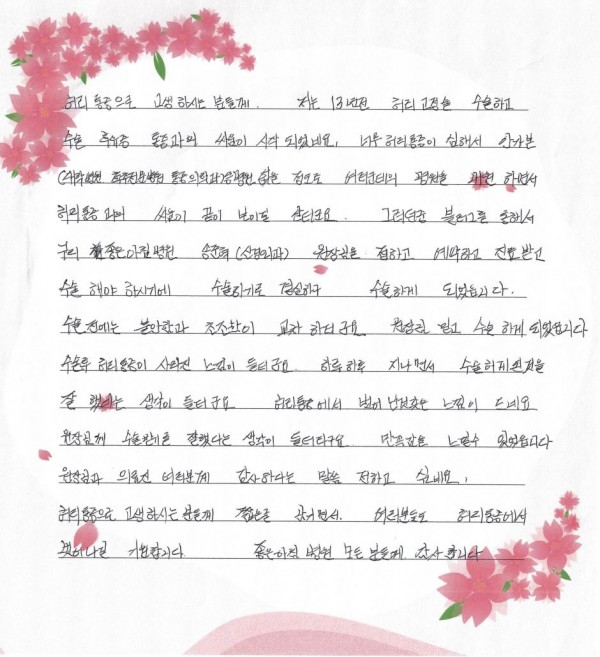 허리통증으로 고생 하시는 분들께. 저는 13년전 허리 고정술 수술하고
수술 후유증 통증과의 싸움이 시작 되었네요. 너무 허리통증이 심해서 안가본
통증의학과 없을 정도로 여러군데의 병원을 하면서
허리통증과의 싸움이 끝이 보이질 않더군요. 그러던중 블로그를 통해서
부의 좋은아침병원 (신경외과) 원장님을 접하고 예약하고 진료받고
수술 해야 하시기에 수술하기로 결심하고 수술하게 되었습니다.
수술전에는 불안함과 초조함이 교차 하더군요 원장님 믿고 수술 하게 되었습니다
수술후 허리통증이 사라진 느낌이 들더군요 하루 하루 지나면서 수술하게된것을
잘 했다는 생각이 들더군요 허리통증에서 벗어 난것같은 느낌이 드네요
원장님께 수술받기를 잘했다는 생각이 들더라구요. 만족감을 느낄수 있었습니다
원장님과 의료진 여러분께 감사하다는 말씀 전하고 싶네요.
허리통증으로 고생하시는 분들께 여러분들도 허리통증에서
벗어나길 기원합니다. 좋은아침 병원 모든 분들께 감사 합니다